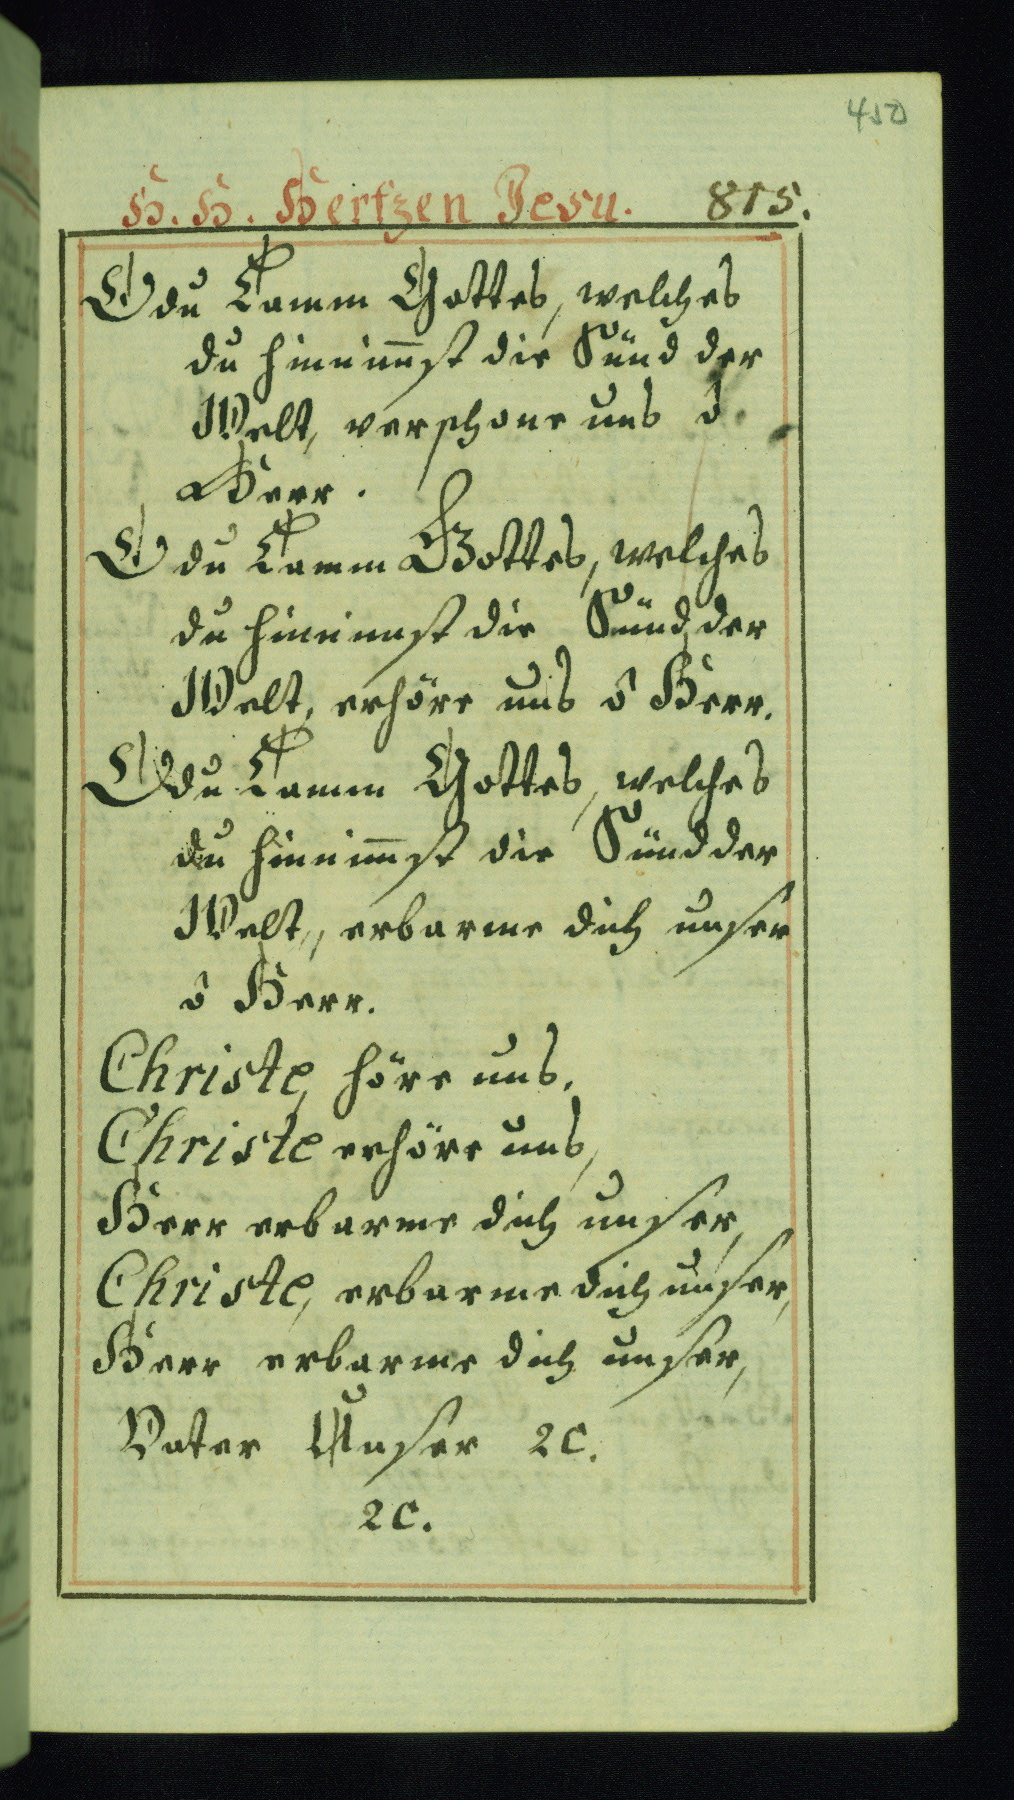 450
H. H. Hertzen Jesu. 815.
O du Lamm Gottes, welches
du hinnim̅st die Sünd der
Welt, verschone uns ô
Herr.
O du Lamm Gottes, welches
du hinnimst die Sünd der
Welt, erhöre uns ô Herr.
O du Lamm Gottes, welches
du hinnim̅st die Sünd der
Welt, erbarme dich unser
ô Herr.
Christe, höre uns.
Christe erhöre uns,
Herr erbarme dich unser,
Christe, erbarme dich unser,
Herr erbarme dich unser,
Vater Unser ꝛc.
ꝛc.